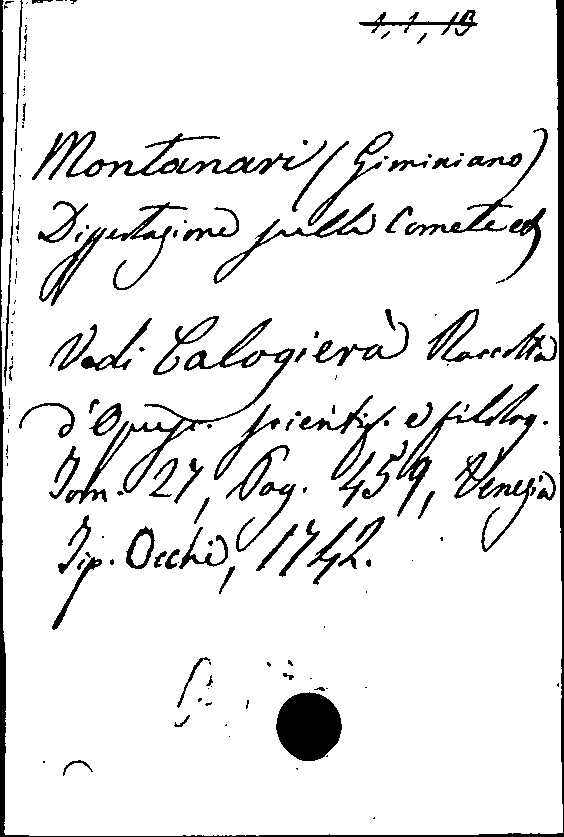 1, 1, 13
Montanari (Giminiano)
Dissertazione sulla Comete ec
Vedi Calogierà Raccolta
d'Opusc. scientif. e filolog.
Tom. 27, Pag. 459, Venezia
Tip. Occhi, 1742.